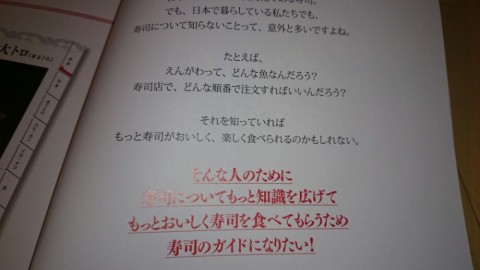 でも、日本で暮らしている私たちでも、
寿司について知らないことって、意外と多いですよね。
たとえば、
えんがわって、どんな魚なんだろう?
寿司店で、どんな順番で注文すればいいんだろう?
それを知っていれば
もっと寿司がおいしく、楽しく食べられるのかもしれない。
そんな人のために
寿司についてもっと知識を広げて
もっとおいしく寿司を食べてもらうため
寿司のガイドになりたい!
大トロ